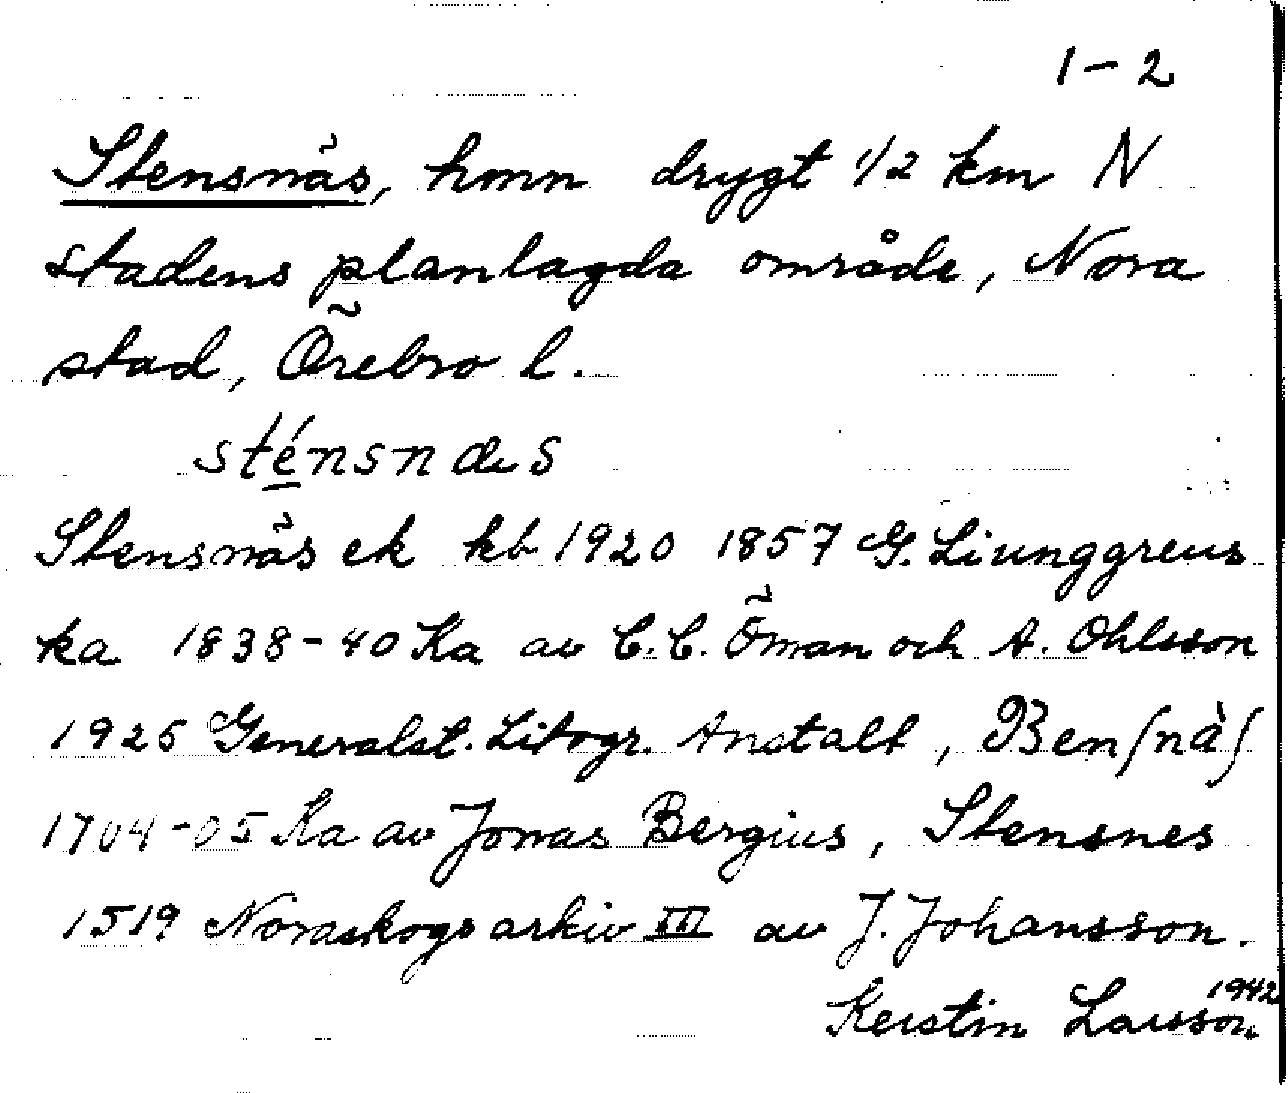 1-2
Stensnäs, hmn drygt 1/2 km N
stadens planlagda område, Nora
stad, Örebro l.
sténsnæs
Stensnäs ek kb 1920 1857 G. Liunggrens
ka 1838-40 Ka av C.C. Öman och A. Ohlsson
1925 Generalst. Litogr. Anstalt, Benſnàſ
1704-05 Ka av Jonas Bergius, Stensnes
1519 Noraskogs arkiv III av J. Johansson.
Kerstin Larsson 1942